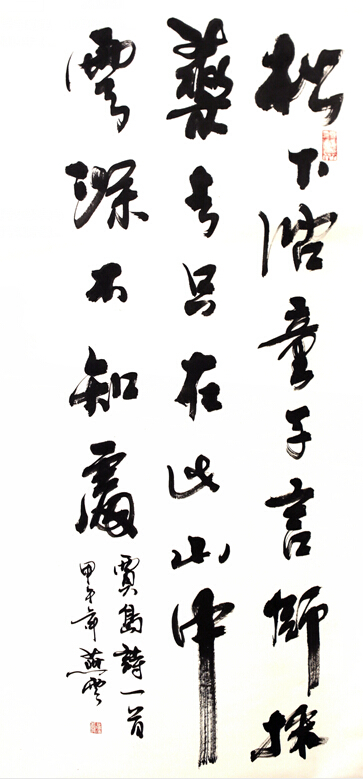 松下問童子言師採
藥去只在此山中
雲深不知處
賈島詩一首
甲午年燕雲